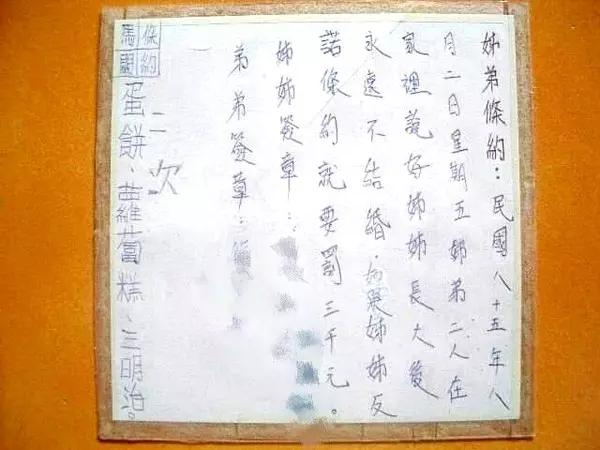 姊弟條約：民國八十五年八
月二日星期五姊弟二人在
家裡說好姊姊長大後
永遠不結婚，如果姊姊反
諾條約就要罰三千元。
姊姊簽章：
弟弟簽章：
馬關
條約
二次
蛋餅、蘿蔔糕、三明治。